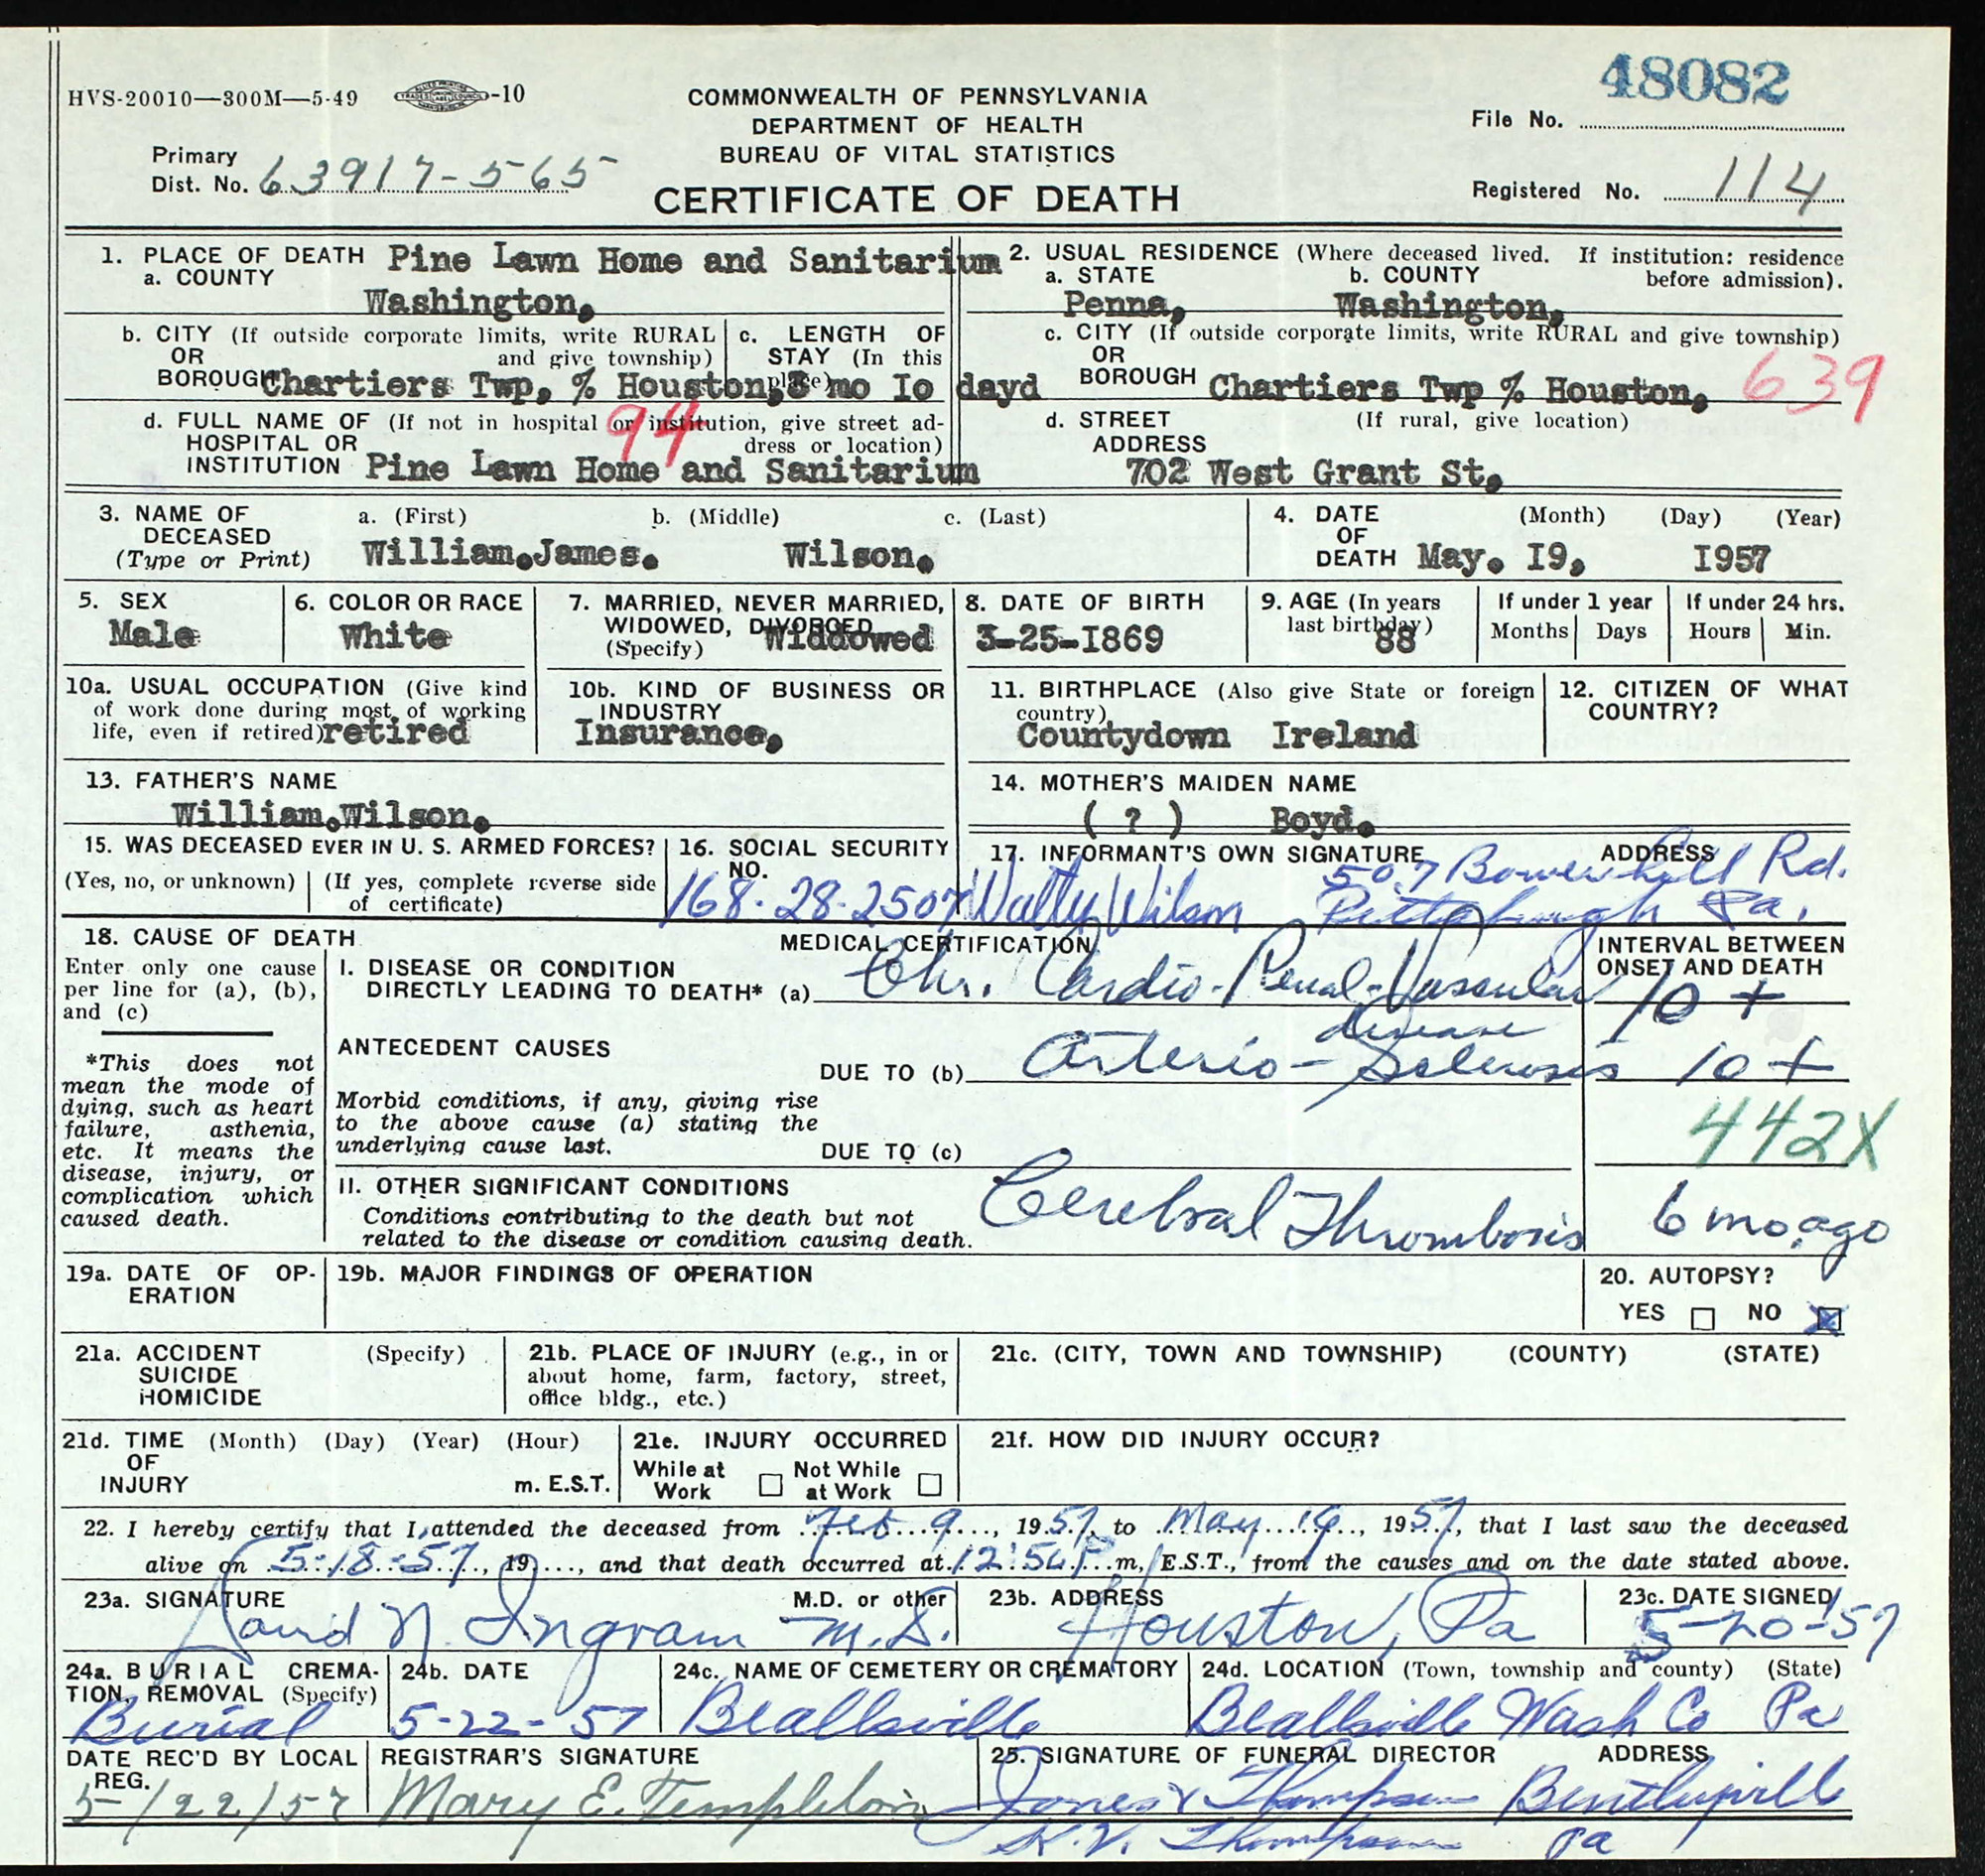 48082
HVS-20010—300M—5-49 -10
COMMONWEALTH OF PENNSYLVANIA
DEPARTMENT OF HEALTH
BUREAU OF VITAL STATISTICS
CERTIFICATE OF DEATH
File No.
Primary
Dist. No. 63917-565
Registered No. 114
1. PLACE OF DEATH Pine Lawn Home and Sanitarium
a. COUNTY
Washington,
2. USUAL RESIDENCE (Where deceased lived. If institution: residence
a. STATE b. COUNTY before admission).
Penna, Washington,
b. CITY (If outside corporate limits, write RURAL
OR and give township)
BOROUGH Chartiers Twp, % Houston,
c. LENGTH OF
STAY (In this
place)
3 mo Io dayd
c. CITY (If outside corporate limits, write RURAL and give township)
OR
BOROUGH Chartiers Twp % Houston, 639
d. FULL NAME OF (If not in hospital or institution, give street ad-
HOSPITAL OR dress or location)
INSTITUTION Pine Lawn Home and Sanitarium
94
d. STREET (If rural, give location)
ADDRESS
702 West Grant St,
3. NAME OF a. (First) b. (Middle) c. (Last)
DECEASED
(Type or Print) William.James. Wilson.
4. DATE (Month) (Day) (Year)
OF
DEATH May. I9, I957
5. SEX
Male
6. COLOR OR RACE
White
7. MARRIED, NEVER MARRIED,
WIDOWED, DIVORCED
(Specify) Widdowed
8. DATE OF BIRTH
3-25-I869
9. AGE (In years
last birthday)
88
If under 1 year
Months Days
If under 24 hrs.
Hours Min.
10a. USUAL OCCUPATION (Give kind
of work done during most of working
life, even if retired) retired
10b. KIND OF BUSINESS OR
INDUSTRY
Insurance,
11. BIRTHPLACE (Also give State or foreign
country)
Countydown Ireland
12. CITIZEN OF WHAT
COUNTRY?
13. FATHER'S NAME
William.Wilson.
14. MOTHER'S MAIDEN NAME
( ? ) Boyd.
15. WAS DECEASED EVER IN U. S. ARMED FORCES?
(Yes, no, or unknown) (If yes, complete reverse side
of certificate)
16. SOCIAL SECURITY
NO.
168-28-2507
17. INFORMANT'S OWN SIGNATURE ADDRESS
507 Bower Hill Rd.
Wilson Pittsburgh Pa.
18. CAUSE OF DEATH
Enter only one cause
per line for (a), (b),
and (c)
*This does not
mean the mode of
dying, such as heart
failure, asthenia,
etc. It means the
disease, injury, or
complication which
caused death.
MEDICAL CERTIFICATION
INTERVAL BETWEEN
ONSET AND DEATH
I. DISEASE OR CONDITION
DIRECTLY LEADING TO DEATH* (a) Chr. Cardio-Renal-Vascular 10 +
disease
ANTECEDENT CAUSES
DUE TO (b) Arterio-Sclerosis 10 +
Morbid conditions, if any, giving rise
to the above cause (a) stating the
underlying cause last.
DUE TO (c)
442X
II. OTHER SIGNIFICANT CONDITIONS
Conditions contributing to the death but not
related to the disease or condition causing death.
Cerebral Thrombosis 6 mo. ago
19a. DATE OF OP-
ERATION
19b. MAJOR FINDINGS OF OPERATION
20. AUTOPSY?
YES NO X
21a. ACCIDENT (Specify)
SUICIDE
HOMICIDE
21b. PLACE OF INJURY (e.g., in or
about home, farm, factory, street,
office bldg., etc.)
21c. (CITY, TOWN AND TOWNSHIP) (COUNTY) (STATE)
21d. TIME (Month) (Day) (Year) (Hour)
OF
INJURY m. E.S.T.
21e. INJURY OCCURRED
While at Work Not While at Work
21f. HOW DID INJURY OCCUR?
22. I hereby certify that I attended the deceased from Feb 9, 1957, to May 19, 1957, that I last saw the deceased
alive on 5-18-57, 19, and that death occurred at 12:50 P m, E.S.T., from the causes and on the date stated above.
23a. SIGNATURE M.D. or other
David N. Ingram M.D.
23b. ADDRESS
Houston, Pa
23c. DATE SIGNED
5-20-57
24a. BURIAL CREMA-
TION, REMOVAL (Specify)
Burial
24b. DATE
5-22-57
24c. NAME OF CEMETERY OR CREMATORY
Beallsville
24d. LOCATION (Town, township and county) (State)
Beallsville Wash Co Pa
DATE REC'D BY LOCAL
REG.
5/22/57
REGISTRAR'S SIGNATURE
Mary E. Templeton
25. SIGNATURE OF FUNERAL DIRECTOR ADDRESS
Jones & Thompson Bentleyville
Thompson Pa